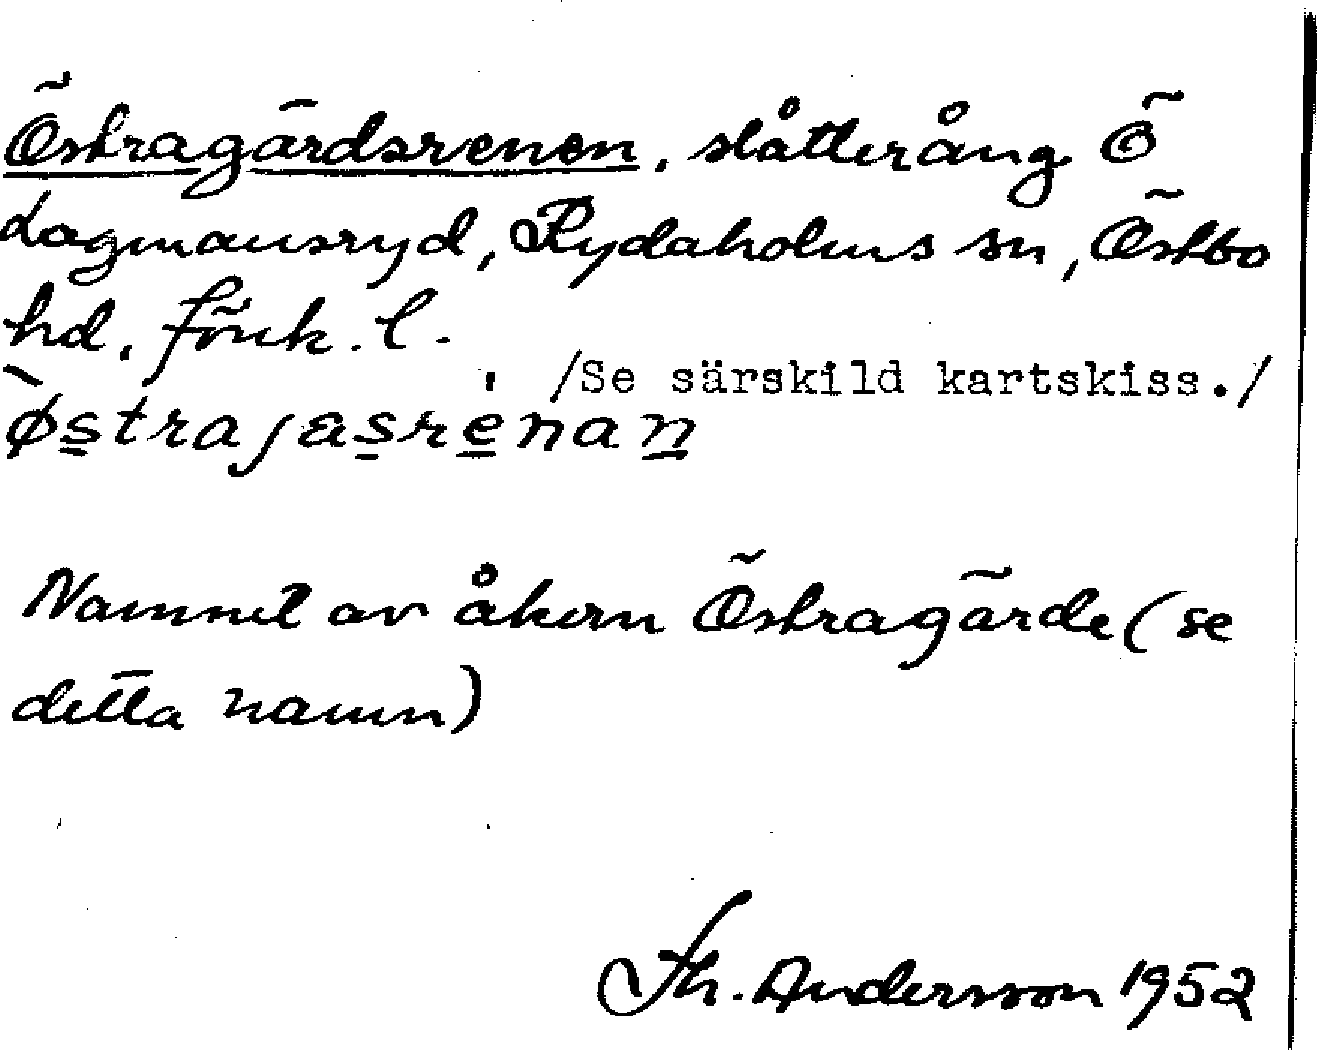 Östragärdsrenen, slåtterång Ö
Lagmansryd, Rydaholms sn, Östbo
hd. Jönk. l.
/Se särskild kartskiss./
østrajasrenan
Namnet av åkern Östragärde (se
detta namn)
Th. Andersson 1952